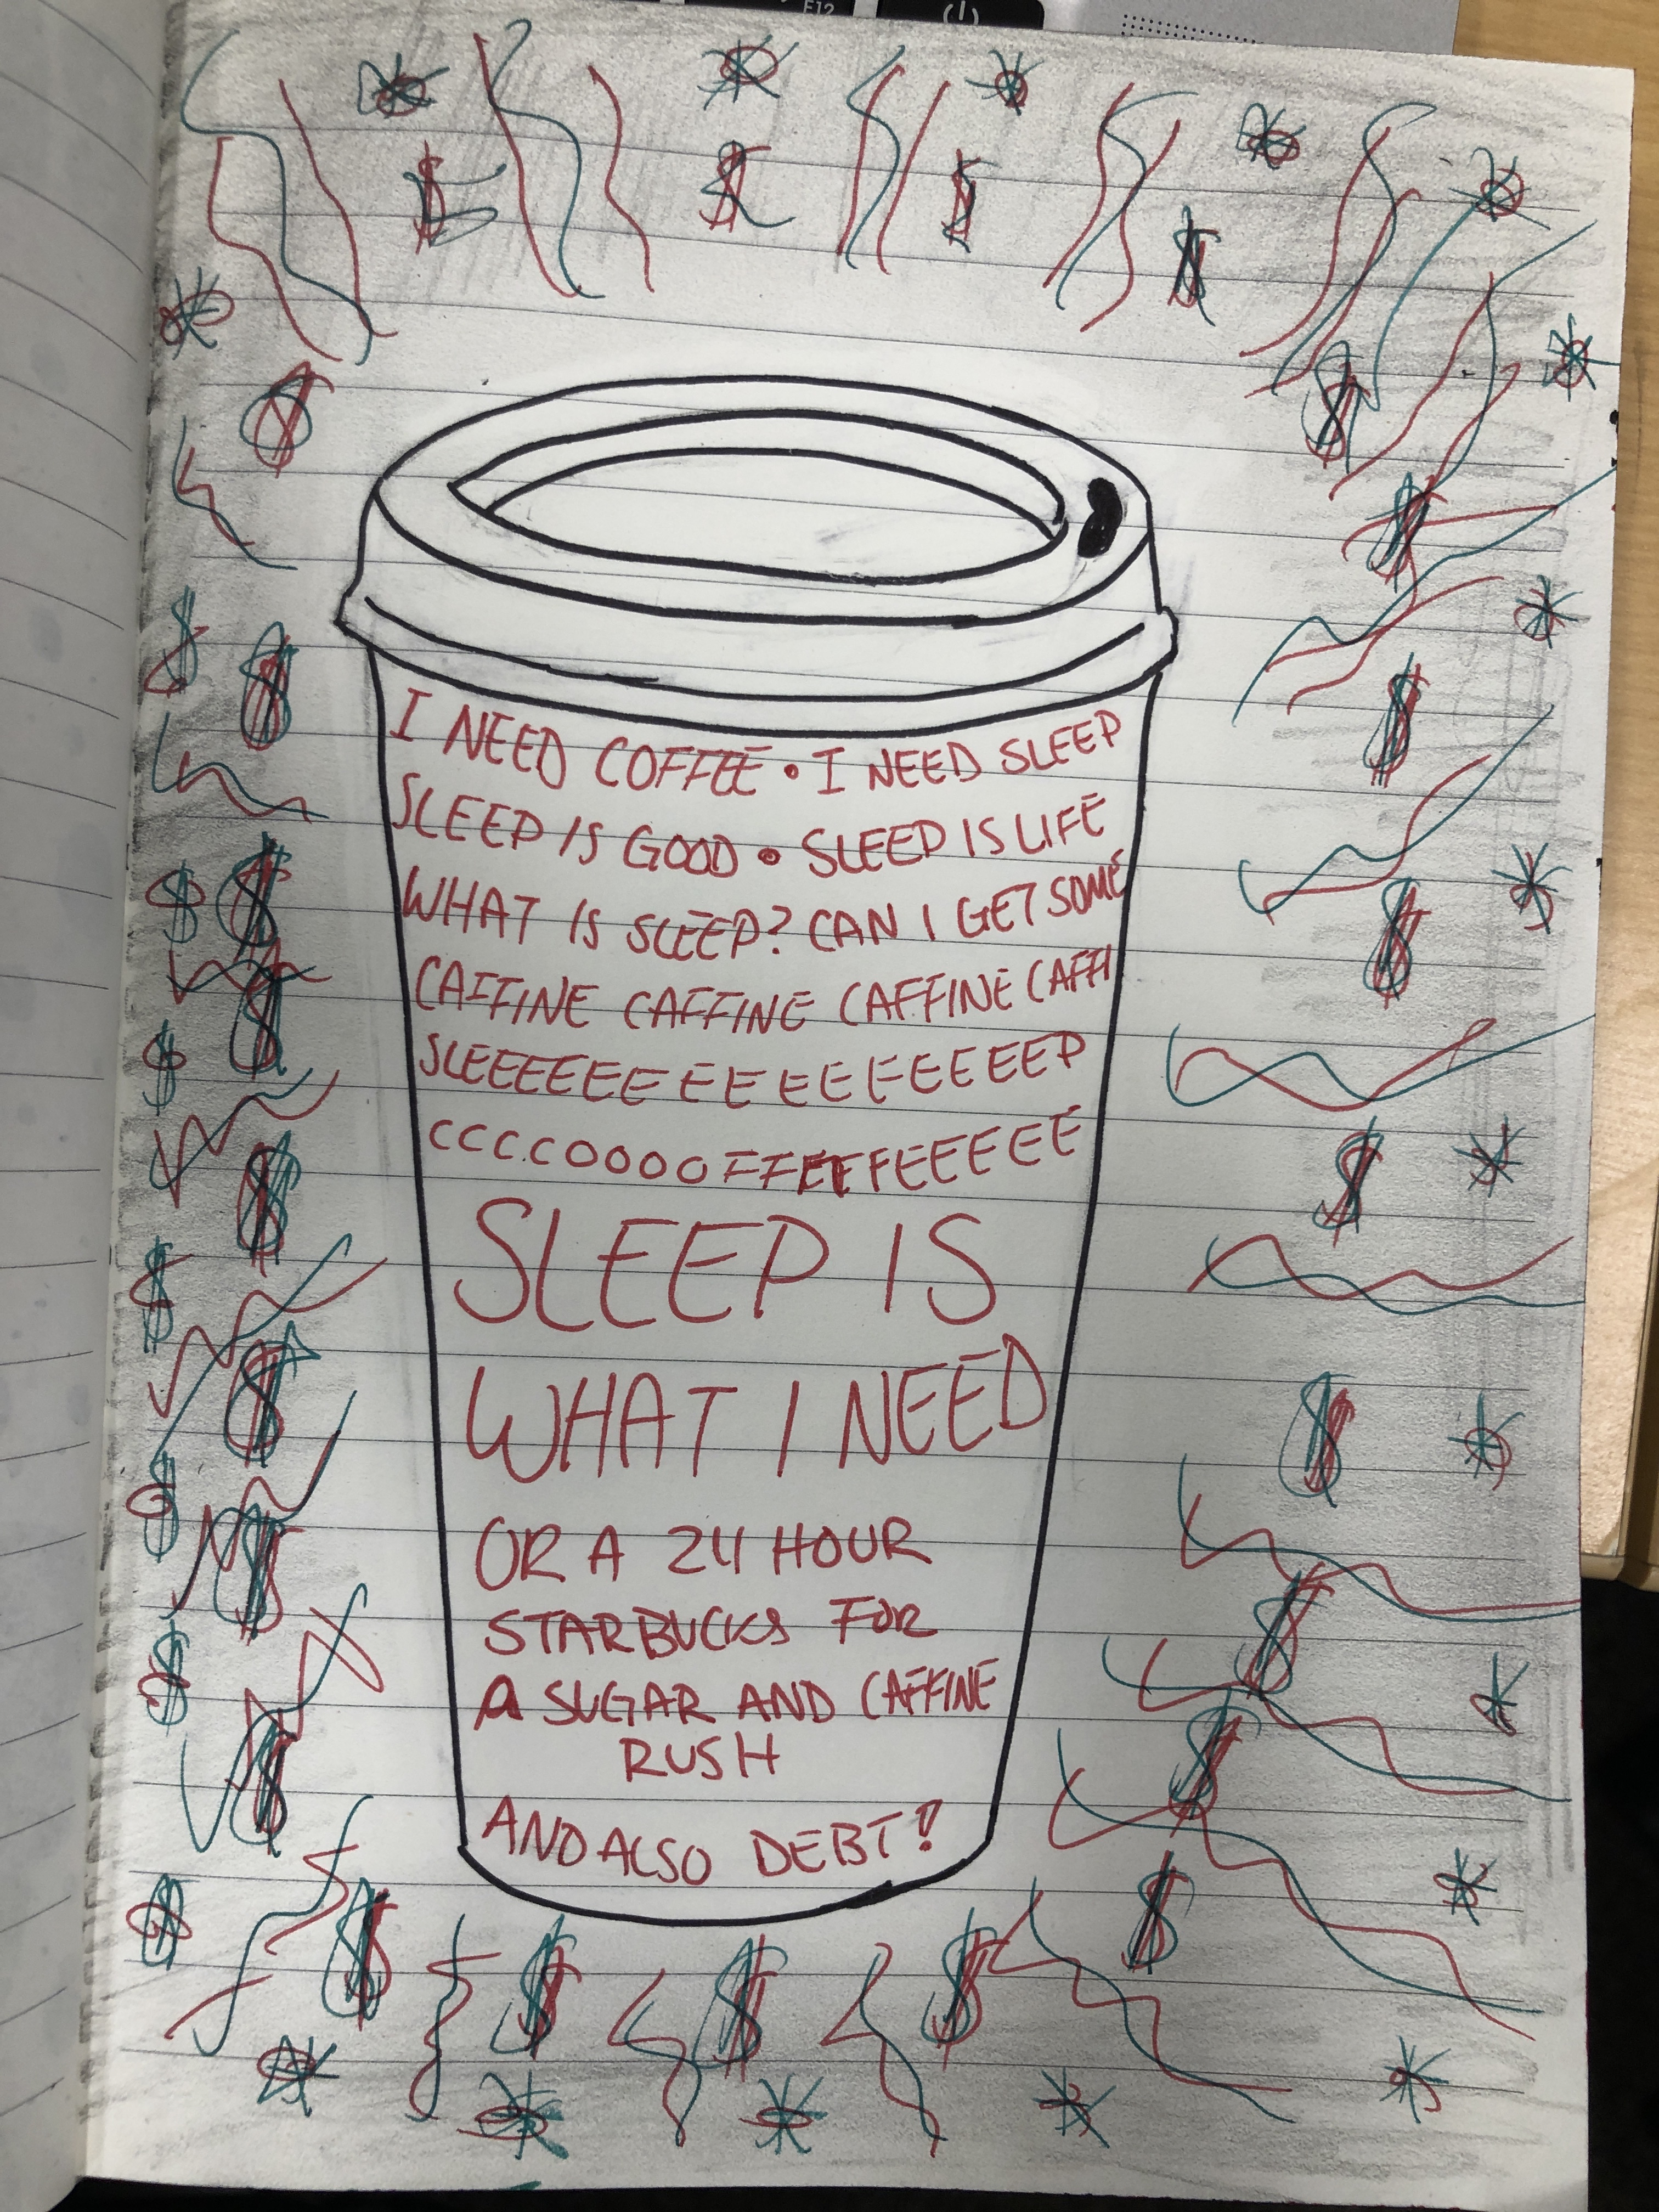 F12
I NEED COFFEE • I NEED SLEEP
SLEEP IS GOOD • SLEEP IS LIFE
WHAT IS SLEEP? CAN I GET SOME
CAFFINE CAFFINE CAFFINE CAFFI
SLEEEEEEEEEEEEEEP
CCCCCOOOOFFFFFEEEEEE
SLEEP IS
WHAT I NEED
OR A 24 HOUR
STARBUCKS FOR
A SUGAR AND CAFFINE
RUSH
AND ALSO DEBT!